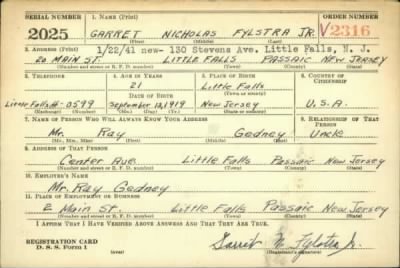 SERIAL NUMBER 1. NAME (Print) ORDER NUMBER
2025 GARRET NICHOLAS FYLSTRA JR. V2316
(First) (Middle) (Last)
2. ADDRESS (Print) 1/22/41 new- 130 Stevens Ave. Little Falls, N. J.
20 MAIN ST. LITTLE FALLS PASSAIC NEW JERSEY
(Number and street or R. F. D. number) (Town) (County) (State)
3. TELEPHONE 4. AGE IN YEARS 5. PLACE OF BIRTH 6. COUNTRY OF CITIZENSHIP
21 Little Falls
(Town or county)
DATE OF BIRTH
Little Falls 4-0599 September 12, 1919 New Jersey U.S.A.
(Exchange) (Number) (Mo.) (Day) (Yr.) (State or country)
7. NAME OF PERSON WHO WILL ALWAYS KNOW YOUR ADDRESS 8. RELATIONSHIP OF THAT PERSON
Mr. Ray Gedney Uncle
(Mr., Mrs., Miss) (First) (Middle) (Last)
9. ADDRESS OF THAT PERSON
Center Ave. Little Falls Passaic New Jersey
(Number and street or R. F. D. number) (Town) (County) (State)
10. EMPLOYER'S NAME
Mr. Ray Gedney
11. PLACE OF EMPLOYMENT OR BUSINESS
2 Main St. Little Falls Passaic New Jersey
(Number and street or R. F. D. number) (Town) (County) (State)
I AFFIRM THAT I HAVE VERIFIED ABOVE ANSWERS AND THAT THEY ARE TRUE.
REGISTRATION CARD
D. S. S. Form 1 (over) Garret N. Fylstra Jr.
(Registrant's signature)